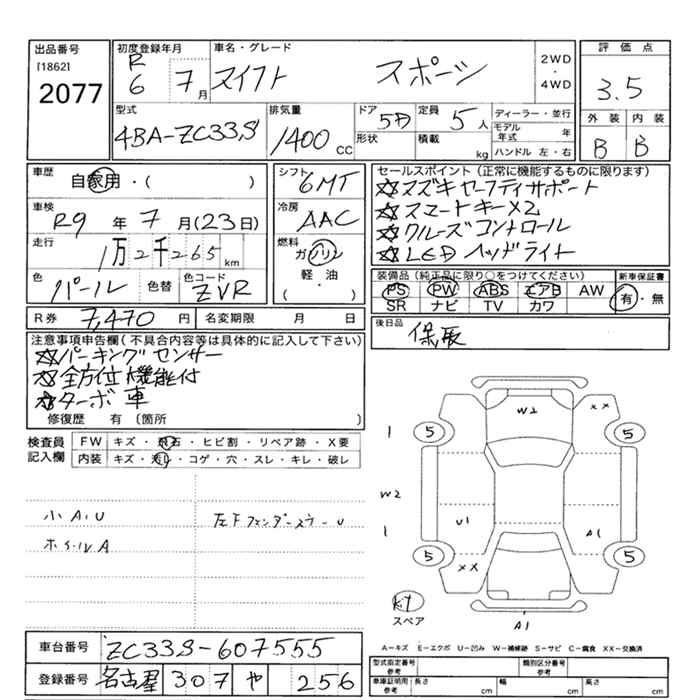 出品番号
[1862]
2077
初度登録年月
R6 7月
車名・グレード
スイフト スポーツ
2WD
・
4WD
評価点
3.5
外装 内装
B B
型式
4BA-ZC33S
排気量
1400 CC
ドア
5D
形状
定員
5人
積載
kg
ディーラー・並行
モデル年式 年
ハンドル 左・右
車歴
自家用・( )
車検
R9年 7月(23日)
走行
1万2千265km
色
パール
色替
色コード
ZVR
シフト
6MT
冷房
AAC
燃料
ガソリン
軽・油
( )
セールスポイント(正常に機能するものに限ります)
☆スズキセーフティサポート
☆スマートキーX2
☆クルーズコントロール
☆LEDヘッドライト
装備品(純正品に限り○をつけてください)
PS PW ABS エアB AW
SR ナビ TV カワ
新車保証書
有・無
R券 7,470円
名変期限 月 日
後日品
保取
注意事項申告欄(不具合内容等は具体的に記入して下さい)
☆パーキングセンサー
☆全方位機能付
☆ターボ車
修復歴 有 〔箇所 〕
検査員
記入欄
FW キズ・飛石・ヒビ割・リペア跡・X要
内装 キズ・汚れ・コゲ・穴・スレ・キレ・破レ
小A,U
ホイールA
左Fフェンダーステー U
W2
XX
1
5
5
W2
1
U1
A1
5
5
XX
スペア
A1
A-キズ E-エクボ U-凹み W-補修跡 S-サビ C-腐食 XX-交換済
車台番号
ZC33S-607555
登録番号
名古屋 307 や 256
型式指定番号
参考
類別区分番号
参考
車庫証明用
参考
長さ cm
幅 cm
高さ cm